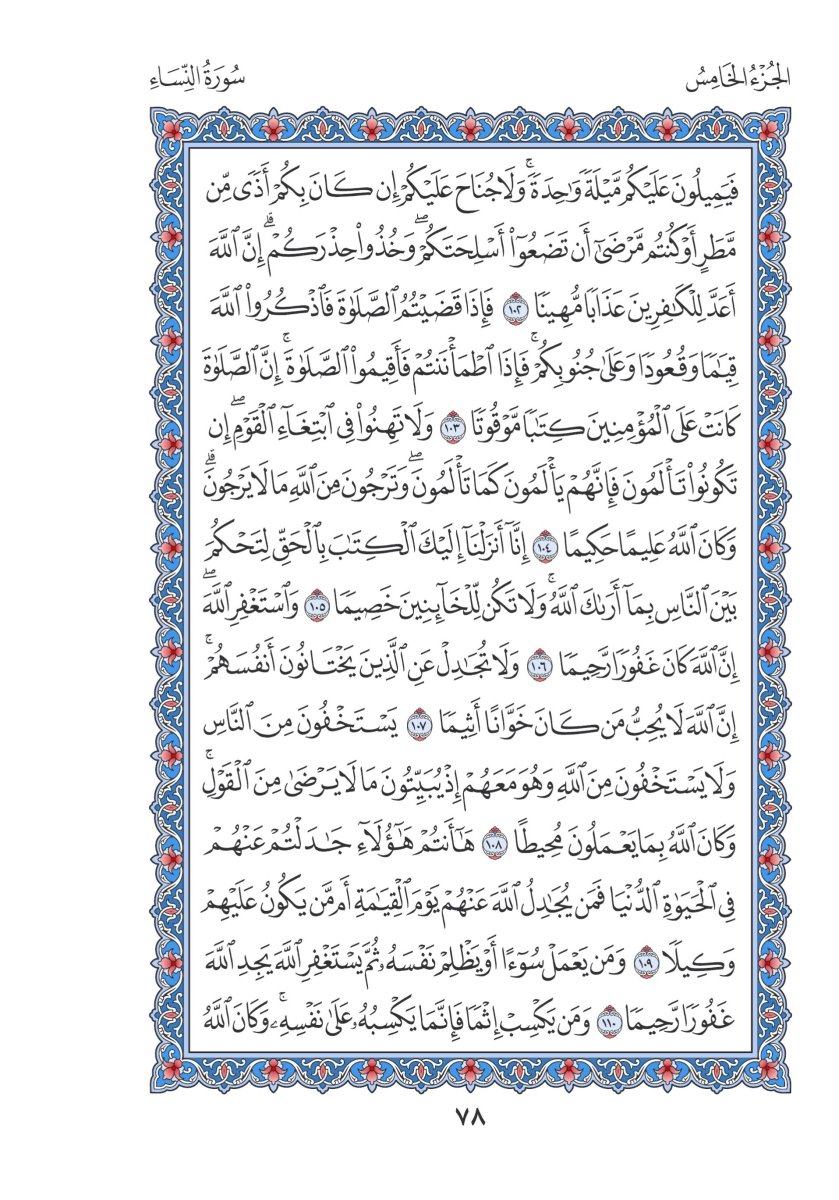 الجُزْءُ الخَامِسُ
سُورَةُ النِّسَاءِ
فَيَمِيلُونَ عَلَيْكُم مَّيْلَةٗ وَٰحِدَةٗۚ وَلَا جُنَاحَ عَلَيْكُمْ إِن كَانَ بِكُمْ أَذٗى مِّن
مَّطَرٍ أَوْ كُنتُم مَّرْضَىٰٓ أَن تَضَعُوٓاْ أَسْلِحَتَكُمْۖ وَخُذُواْ حِذْرَكُمْۗ إِنَّ ٱللَّهَ
أَعَدَّ لِلْكَٰفِرِينَ عَذَابٗا مُّهِينٗا ١٠٢ فَإِذَا قَضَيْتُمُ ٱلصَّلَوٰةَ فَٱذْكُرُواْ ٱللَّهَ
قِيَٰمٗا وَقُعُودٗا وَعَلَىٰ جُنُوبِكُمْۚ فَإِذَا ٱطْمَأْنَنتُمْ فَأَقِيمُواْ ٱلصَّلَوٰةَۚ إِنَّ ٱلصَّلَوٰةَ
كَانَتْ عَلَى ٱلْمُؤْمِنِينَ كِتَٰبٗا مَّوْقُوتٗا ١٠٣ وَلَا تَهِنُواْ فِي ٱبْتِغَآءِ ٱلْقَوْمِۖ إِن
تَكُونُواْ تَأْلَمُونَ فَإِنَّهُمْ يَأْلَمُونَ كَمَا تَأْلَمُونَۖ وَتَرْجُونَ مِنَ ٱللَّهِ مَا لَا يَرْجُونَۗ
وَكَانَ ٱللَّهُ عَلِيمًا حَكِيمًا ١٠٤ إِنَّآ أَنزَلْنَآ إِلَيْكَ ٱلْكِتَٰبَ بِٱلْحَقِّ لِتَحْكُمَ
بَيْنَ ٱلنَّاسِ بِمَآ أَرَىٰكَ ٱللَّهُۚ وَلَا تَكُن لِّلْخَآئِنِينَ خَصِيمٗا ١٠٥ وَٱسْتَغْفِرِ ٱللَّهَۖ
إِنَّ ٱللَّهَ كَانَ غَفُورٗا رَّحِيمٗا ١٠٦ وَلَا تُجَٰدِلْ عَنِ ٱلَّذِينَ يَخْتَانُونَ أَنفُسَهُمْۚ
إِنَّ ٱللَّهَ لَا يُحِبُّ مَن كَانَ خَوَّانًا أَثِيمٗا ١٠٧ يَسْتَخْفُونَ مِنَ ٱلنَّاسِ
وَلَا يَسْتَخْفُونَ مِنَ ٱللَّهِ وَهُوَ مَعَهُمْ إِذْ يُبَيِّتُونَ مَا لَا يَرْضَىٰ مِنَ ٱلْقَوْلِۚ
وَكَانَ ٱللَّهُ بِمَا يَعْمَلُونَ مُحِيطًا ١٠٨ هَٰٓأَنتُمْ هَٰٓؤُلَآءِ جَٰدَلْتُمْ عَنْهُمْ
فِي ٱلْحَيَوٰةِ ٱلدُّنْيَا فَمَن يُجَٰدِلُ ٱللَّهَ عَنْهُمْ يَوْمَ ٱلْقِيَٰمَةِ أَم مَّن يَكُونُ عَلَيْهِمْ
وَكِيلٗا ١٠٩ وَمَن يَعْمَلْ سُوٓءًا أَوْ يَظْلِمْ نَفْسَهُۥ ثُمَّ يَسْتَغْفِرِ ٱللَّهَ يَجِدِ ٱللَّهَ
غَفُورٗا رَّحِيمٗا ١١٠ وَمَن يَكْسِبْ إِثْمٗا فَإِنَّمَا يَكْسِبُهُۥ عَلَىٰ نَفْسِهِۦۚ وَكَانَ ٱللَّهُ
٧٨